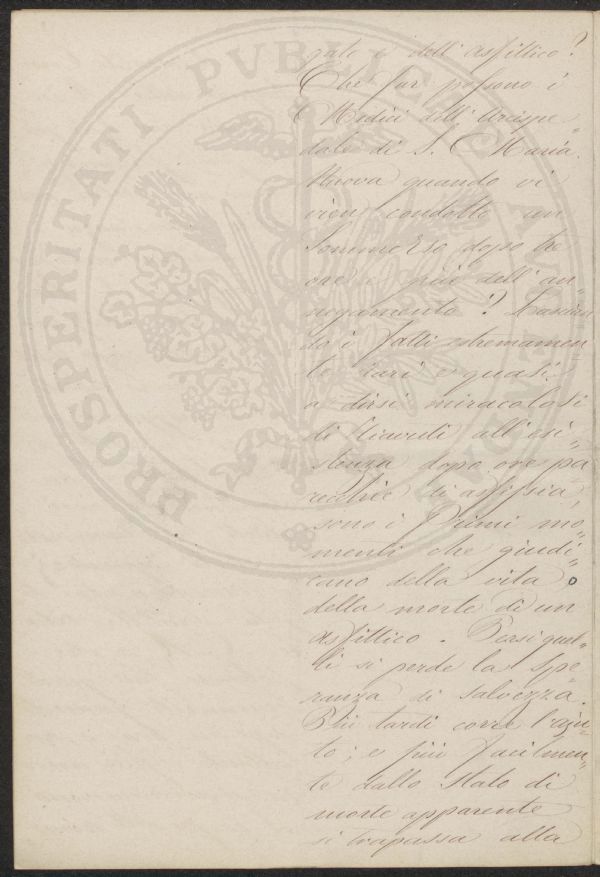 gato e dell'asfittico?
Che far possono i
Medici dell'Arcispe"
dale di S. Maria
Nuova quando vi
vien condotto un
Sommerso dopo tre
ore e più dell'an"
negamento? Lascian"
do i fatti estremamen"
te rari e quasi
a dirsi miracolosi
di ritornati all'esi"
stenza dopo ore pa"
recchie di asfissia,
sono i Primi mo"
menti che giudi"
cano della vita o
della morte di un
asfittico. Persi quel"
li si perde la Spe"
ranza di salvezza.
Più tardi corre l'aju"
to; e più facilmen"
te dallo stato di
morte apparente
si trapassa alla
PROSPERITATI PVBLICAE AVGENDAE